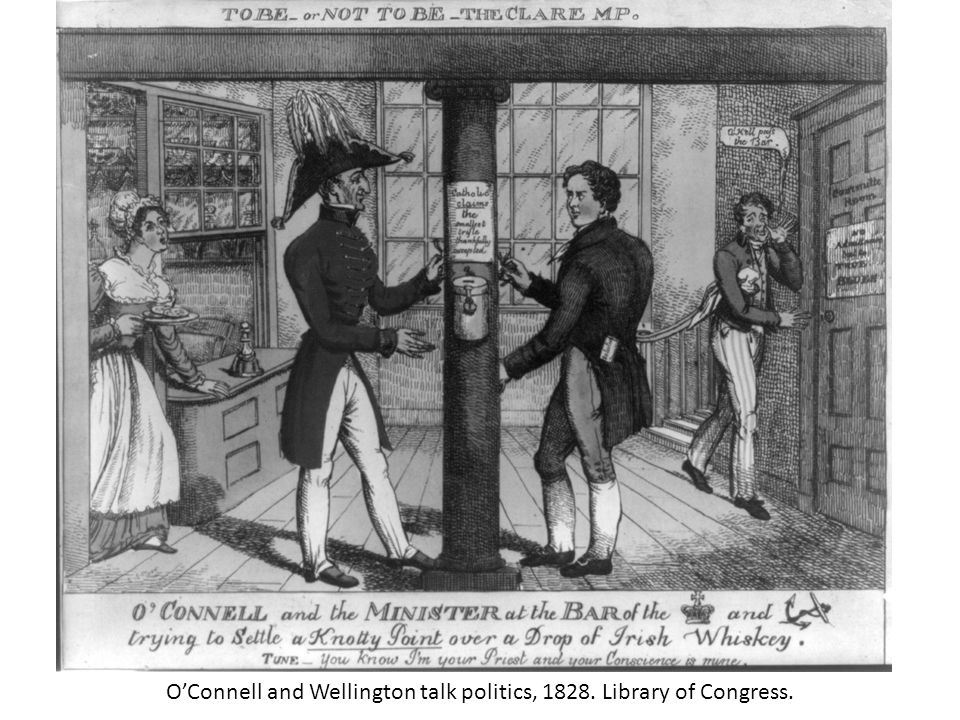 TO BE - or NOT TO BE - THE CLARE MP.
Catholic
claims
the
smallest
trifle
thankfully
accepted
a Kell pays
the Bar.
Committe
Room
O'CONNELL and the MINISTER at the BAR of the and
trying to Settle a Knotty Point over a Drop of Irish Whiskey.
TUNE - You Know I'm your Priest and your Conscience is mine.
O'Connell and Wellington talk politics, 1828. Library of Congress.